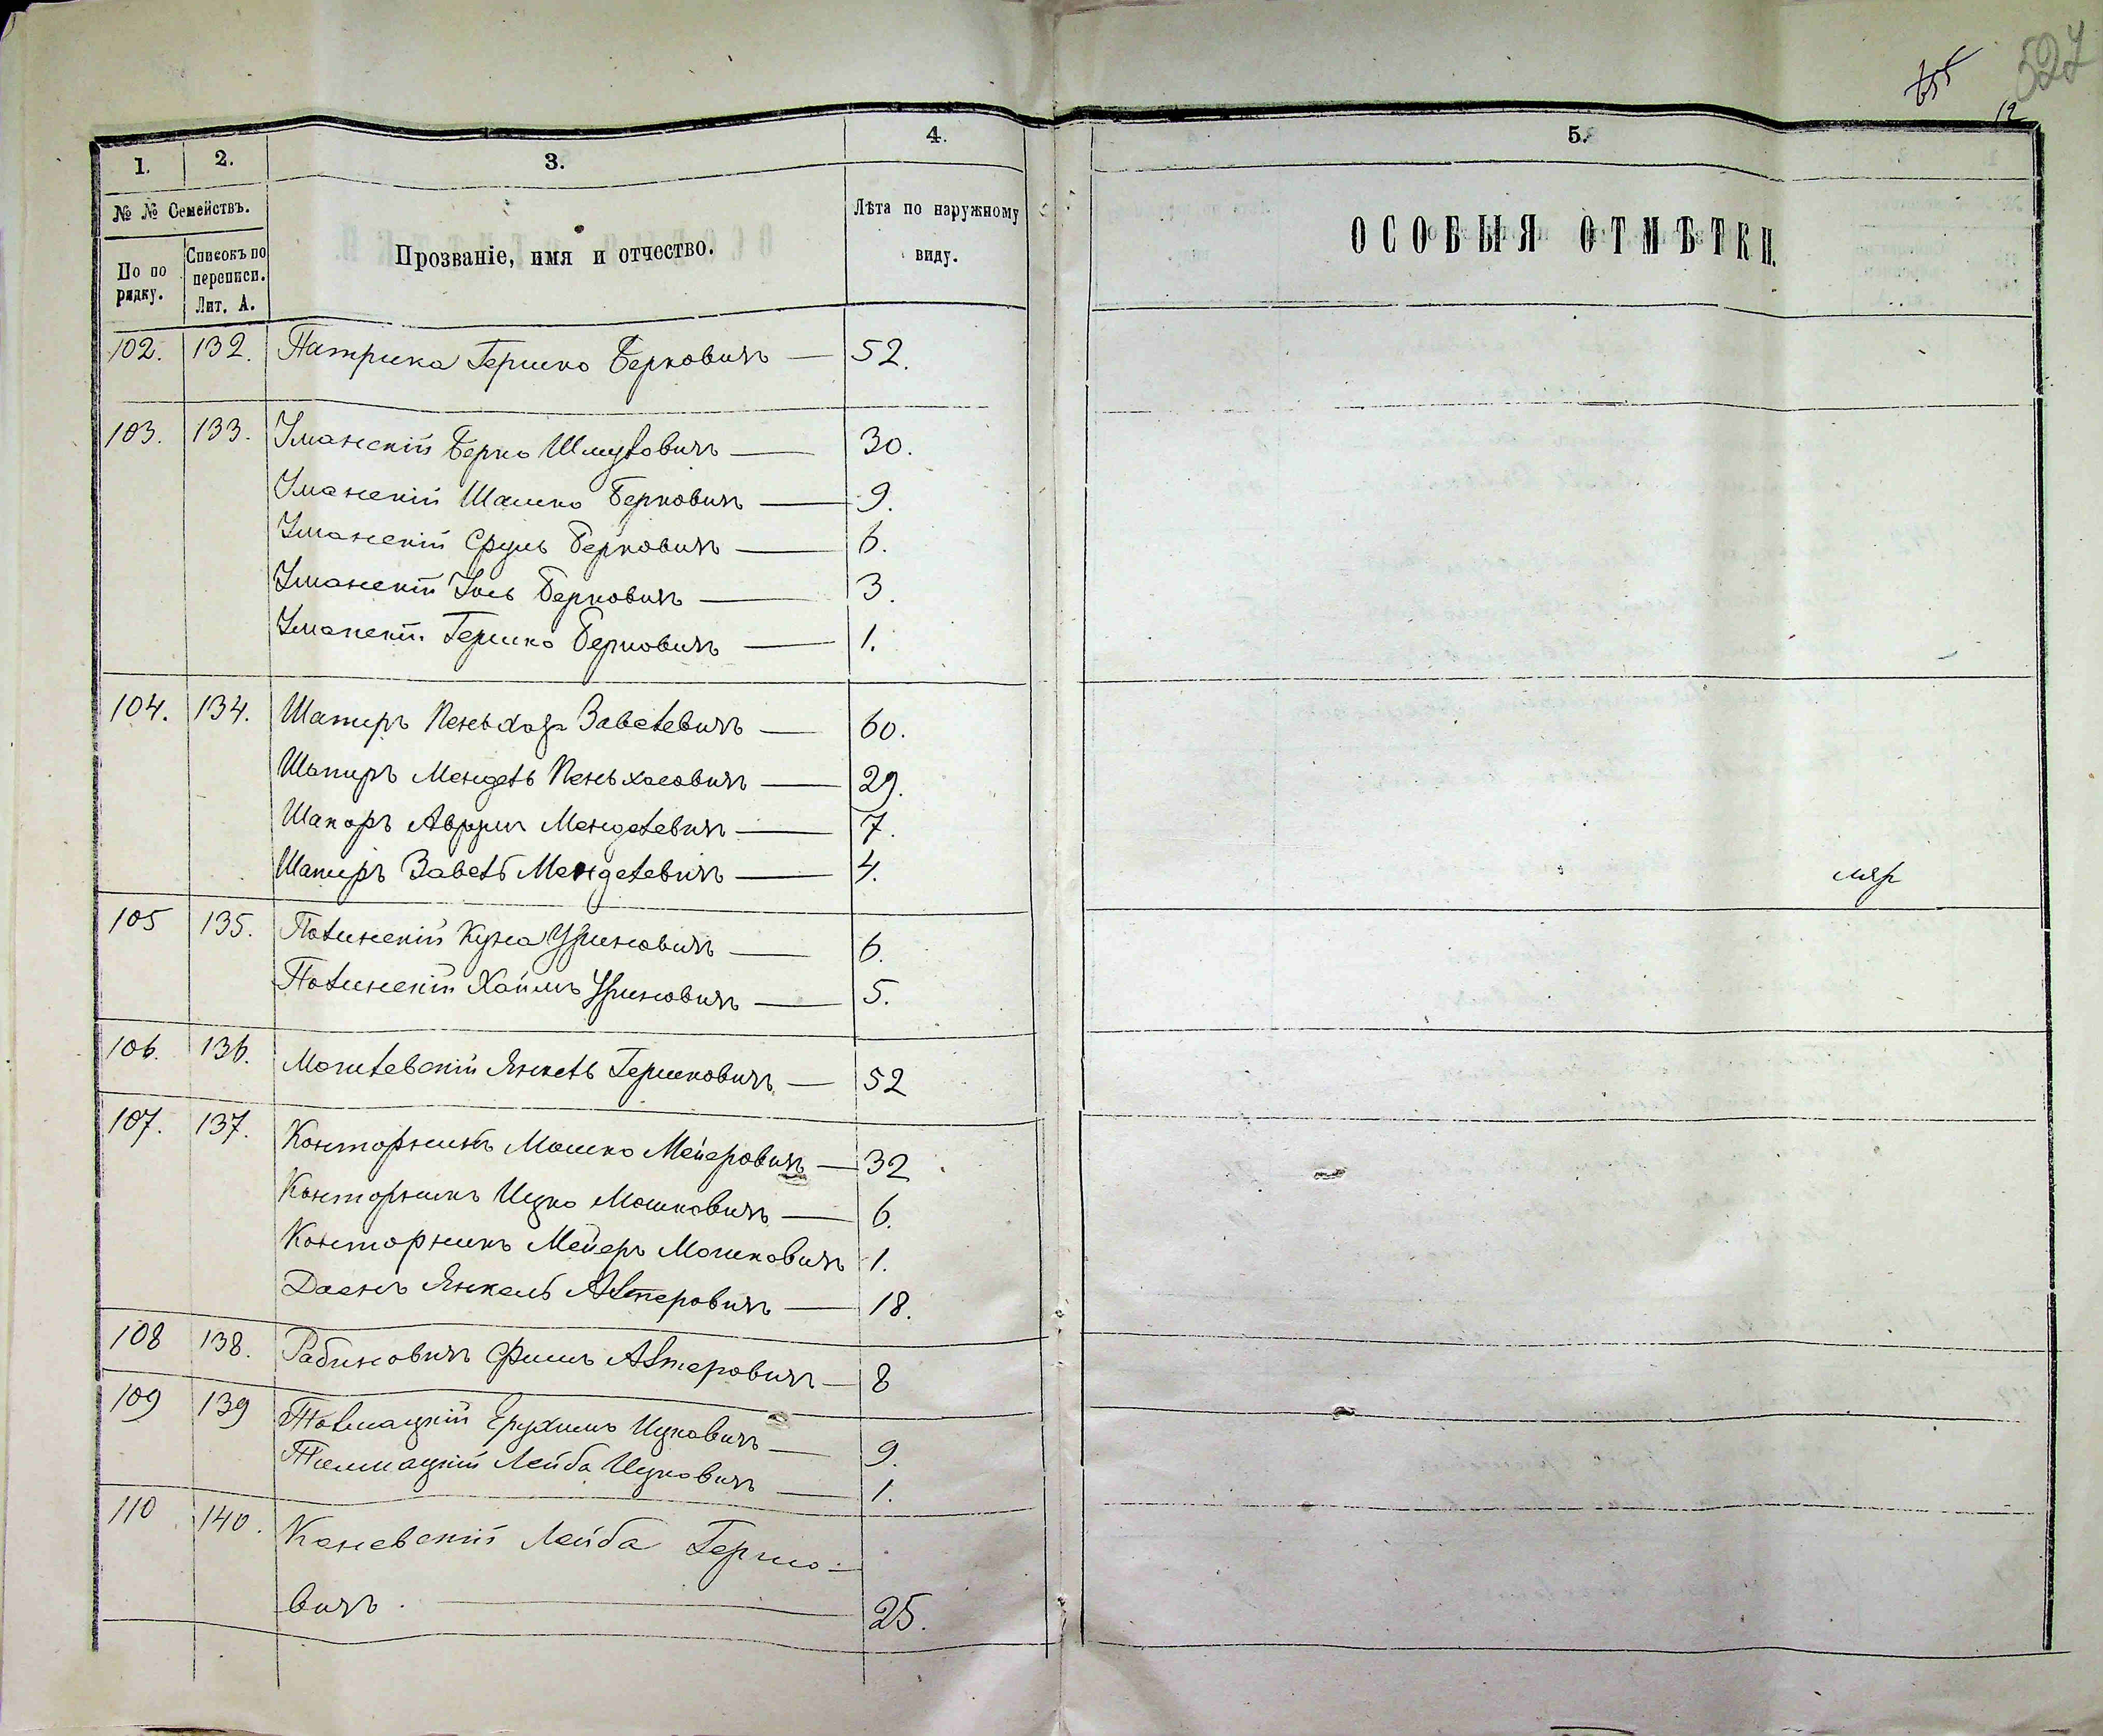 527
12
1.
2.
3.
4.
5.
№ № Семействъ.
По по
рядку.
Списокъ по
переписи.
Лит. А.
Прозваніе, имя и отчество.
Лѣта по наружному
виду.
ОСОБЫЯ ОТМѢТКИ.
102. 132. Патрика Гершко Берковичъ — 52.
103. 133. Уманскій Берко Шмулевичъ — 30.
Уманскій Шашко Берковичъ — 9.
Уманскій Сруль Берковичъ — 6.
Уманскій Іось Берковичъ — 3.
Уманскій Гершко Берковичъ — 1.
104. 134. Шапиръ Пеньхасъ Завелевичъ — 60.
Шапиръ Мендель Пеньхасовичъ — 29.
Шапоръ Аврумъ Менделевичъ — 7.
Шапиръ Завель Менделевичъ — 4.
умр
105 135. Полинскій Куна Уриновичъ — 6.
Полинскій Хаимъ Уриновичъ — 5.
106. 136. Могилевскій Янкель Гершковичъ — 52
107. 137. Конторникъ Мошко Мейеровичъ — 32
Конторникъ Ицко Мошковичъ — 6.
Конторникъ Мейеръ Мошковичъ 1.
Даенъ Янкель Альтеровичъ — 18.
108 138. Рабиновичъ Фишъ Альтеровичъ — 8
109 139 Толмацкій Ерухимъ Ицковичъ — 9.
Толмацкій Лейба Ицковичъ — 1.
110 140. Каневскій Лейба Гершко-
вичъ. — 25.